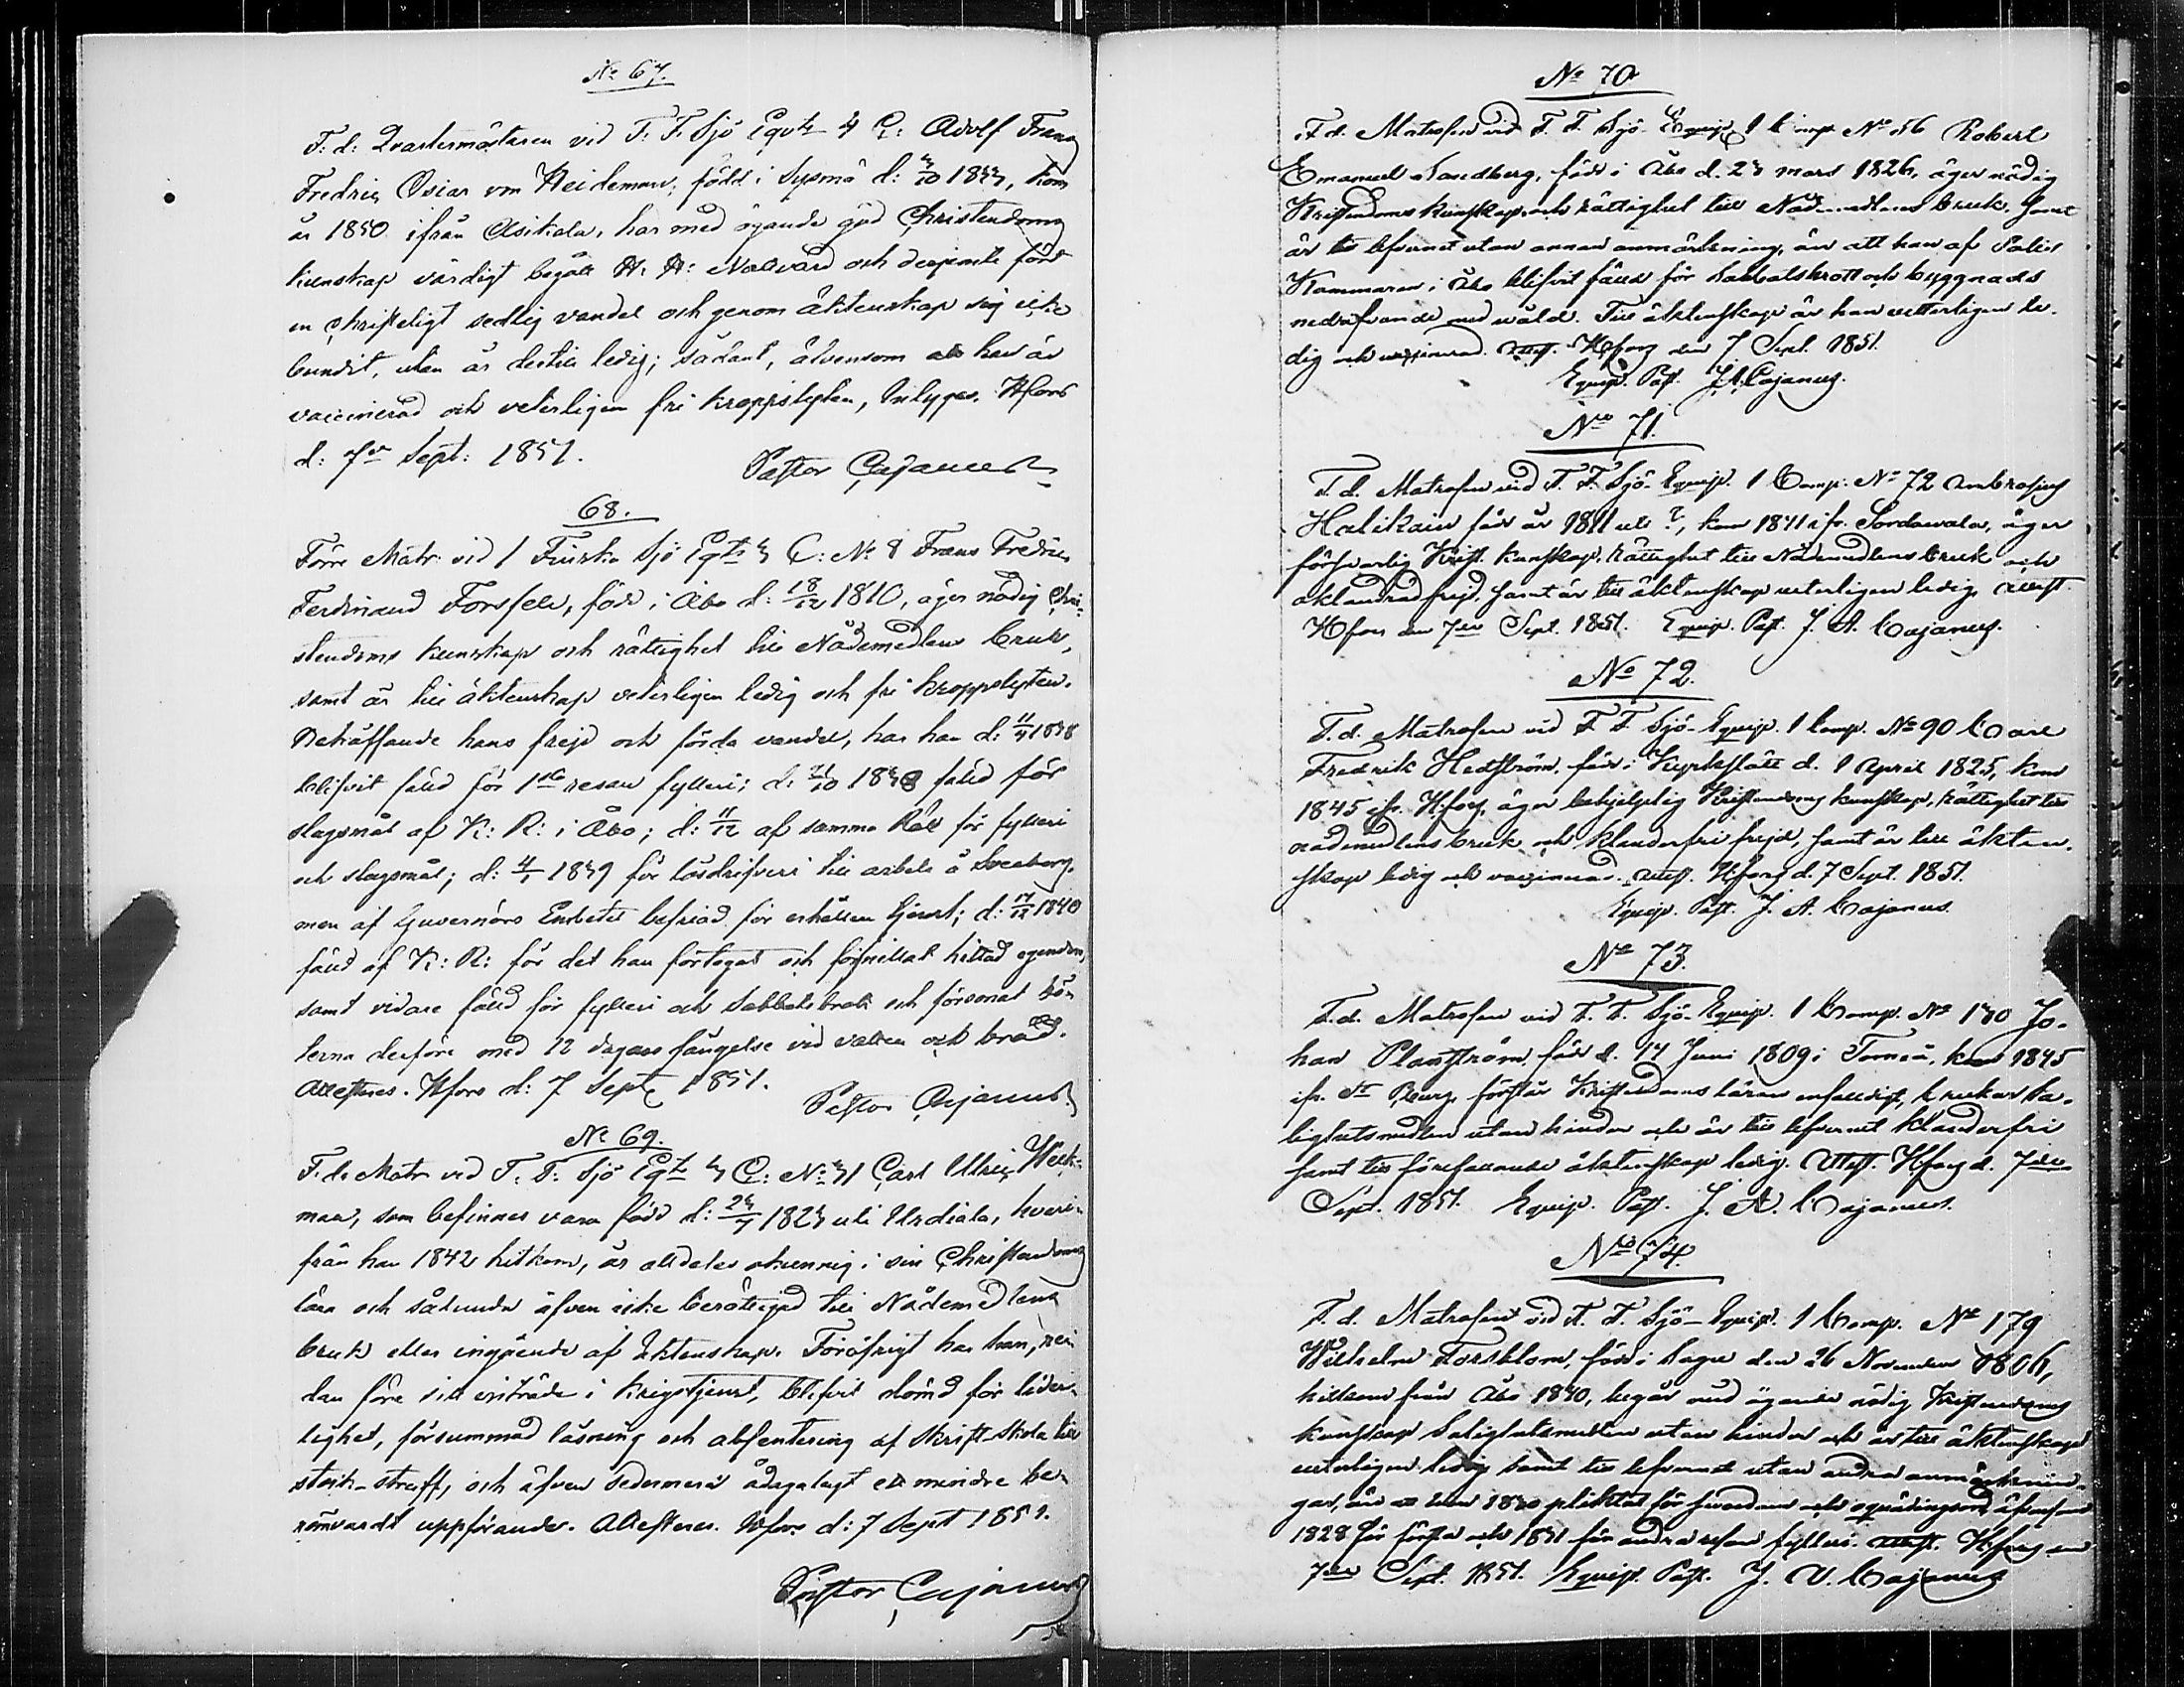 No 67.
F: d: Qvartermästaren vid F: F. Sjö Eqvtz 4 C: Adolf Franz
Fredric Oscar von Heideman, född i Sysmä d: 3/10 1833, kom
år 1850 ifrån Asikala, har med ägande god Christendoms
kunskap värdigt begått H. H: Nattvard och derjemte fört
en christeligt sedlig vandel och genom äktenskap sig icke
bundit, utan är dertill ledig; sådant, äfvensom att han är
vaccinerad och veterligen fri kroppslyten, betygas. Hfors
d: 7de Sept: 1851.
Pastor Cajanus
68.
Förre Matr. vid 1 Finska Sjö Eqtz 3 C: No 8 Frans Fredric
Ferdinand Forssell, född i Åbo d: 18/12 1810, äger nödig Chri-
stendoms kunskap och rättighet till Nådemedlens bruk,
samt är till äktenskap veterligen ledig och fri kroppslyten.
Beträffande hans frejd och förda vandel, har han d: 11/4 1838
blifvit fälld för 1sta resan fylleri; d: /10 1838 fälld för
slagsmål af K: R: i Åbo; d: 11/12 af samma Rätt för fylleri
och slagsmål; d: 4/1 1839 för lösdrifveri till arbete å Sveaborg,
men af Guvernörs Embetet befriad för erhållen tjenst; d: 14/12 1840
fälld af K: R: för det han förtegat och förskillat hittad egendom,
samt vidare fälld för fylleri och Sabbatsbrott och försonat bö-
terna derföre med 12 dagars fängelse vid vatten och bröd.
Attesteras. Hfors d: 7 Sept 1851.
Pastor Cajanus
No 69.
F: d: Matr vid F. F: Sjö Eqtz 3 C: No 31 Carl Ulric Weck-
man, som befinnes vara född d: 23/7 1823 uti Urdiala, hvari-
från han 1842 hitkom, är alldeles okunnig i sin Christendoms
lära och sålunda äfven icke berättigad till Nådemedlens
bruk eller ingående af äktenskap. Föröfrigt har han, re-
dan före sitt inträde i krigstjenst, blifvit dömd för lider-
lighet, försummad läsning och absentering af Skrift-skola till
stock-straff, och äfven sedermera ådagalagt ett mindre be-
römvärdt uppförande. Attesteras. Hfors d: 7 Sept 1851.
Pastor Cajanus
No 70
F. d. Matrosen vid F. F. Sjö-Equip. 1 Comp No 56 Robert
Emanuel Sandberg, född i Åbo d. 23 mars 1826, äger nödig
Kristendoms kunskap och rättighet till Nådemedlens bruk, samt
är till lefvernet utan annan anmärkning, än att han af Polis
Kammaren i Åbo blifvit fälld för Sabbatsbrott och byggnads
nedrifvande med våld. Till äktenskap är han vetterligen le-
dig och vaccinerad. Attest. Hfors den 7 Sept. 1851.
Equip. Past. J. A. Cajanus.
No 71.
F. d. Matrosen vid F. F. Sjö-Equip. 1 Comp. No 72 Ambrosius
Halikain född år 1811 uti ?, kom 1841 ifr. Sordawala, äger
försvarlig Krist. kunskap, rättighet till Nådemedlens bruk och
oklandrad frejd, samt är till äktenskap veterligen ledig. Attest.
Hfors den 7de Sept. 1851. Equip. Past. J. A. Cajanus.
No 72.
F. d. Matrosen vid F. F. Sjö-Equip. 1 Comp. No 90 Carl
Fredrik Hedström, född i Kyrkslätt d. 1 April 1825, kom
1845 ifr. Hfors, äger behjelplig Kristendoms kunskap, rättighet till
nådemedlens bruk och klanderfri frejd, samt är till äkten-
skap ledig och vaccinerad. Attest. Hfors d. 7 Sept. 1851.
Equip. Past. J. A. Cajanus.
No 73.
F. d. Matrosen vid F. F. Sjö-Equip. 1 Comp. No 130 Jo-
han Planström, född d. 14 Juni 1809 i Torneå, kom 1845
ifr. St Pburg, förstår Kristendoms läran enfaldigt, brukar Sa-
lighetsmedlen utan hinder och är till lefvernet klanderfri
samt till förefallande äktenskap ledig. Attest. Hfors d. 7de
Sept. 1851. Equip. Past. J. A. Cajanus.
No 74.
F. d. Matrosen vid F. F. Sjö-Equip. 1 Comp. No 179
Wilhelm Forsblom, född i Sagu den 26 November 1806,
hitkom från Åbo 1840, begår med ägande nödig Kristendoms
kunskap Salighetsmedlen utan hinder och är till äktenskap
veterligen ledig samt till lefvernet utan andra anmärknin-
gar, än 1830 pliktat för svordom och oqvädingsord, äfvensom
1828 för första och 1831 för andra resan fylleri. Attest. Hfors den
7de Sept. 1851. Equip. Past. J. A. Cajanus